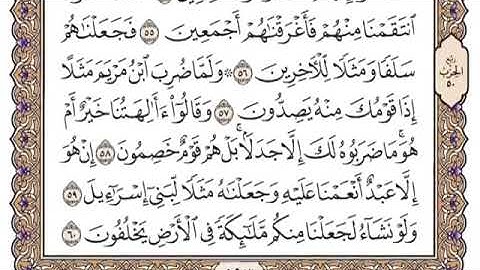 ٱنتَقَمۡنَا مِنۡهُمۡ فَأَغۡرَقۡنَٰهُمۡ أَجۡمَعِينَ ٥٥ فَجَعَلۡنَٰهُمۡ
سَلَفٗا وَمَثَلٗا لِّلۡأٓخِرِينَ ٥٦ ۞ وَلَمَّا ضُرِبَ ٱبۡنُ مَرۡيَمَ مَثَلًا
إِذَا قَوۡمُكَ مِنۡهُ يَصِدُّونَ ٥٧ وَقَالُوٓاْ ءَأَٰلِهَتُنَا خَيۡرٌ أَمۡ
هُوَۚ مَا ضَرَبُوهُ لَكَ إِلَّا جَدَلَۢاۚ بَلۡ هُمۡ قَوۡمٌ خَصِمُونَ ٥٨ إِنۡ هُوَ
إِلَّا عَبۡدٌ أَنۡعَمۡنَا عَلَيۡهِ وَجَعَلۡنَٰهُ مَثَلٗا لِّبَنِيٓ إِسۡرَٰٓءِيلَ ٥٩
وَلَوۡ نَشَآءُ لَجَعَلۡنَا مِنكُم مَّلَٰٓئِكَةٗ فِي ٱلۡأَرۡضِ يَخۡلُفُونَ ٦٠
ربع
الحزب
٥٠